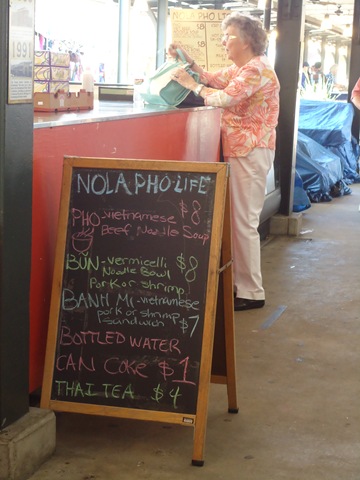 1991
NOLA PHO LIFE
NOLA PHO-LIFE
PHO-vietnamese $8
Beef Noodle Soup
BÚN-vermicelli $8
Noodle Bowl
Pork or Shrimp
BANH MI-vietnamese
pork or shrimp
sandwich $7
BOTTLED WATER
CAN COKE $1
THAI TEA $4